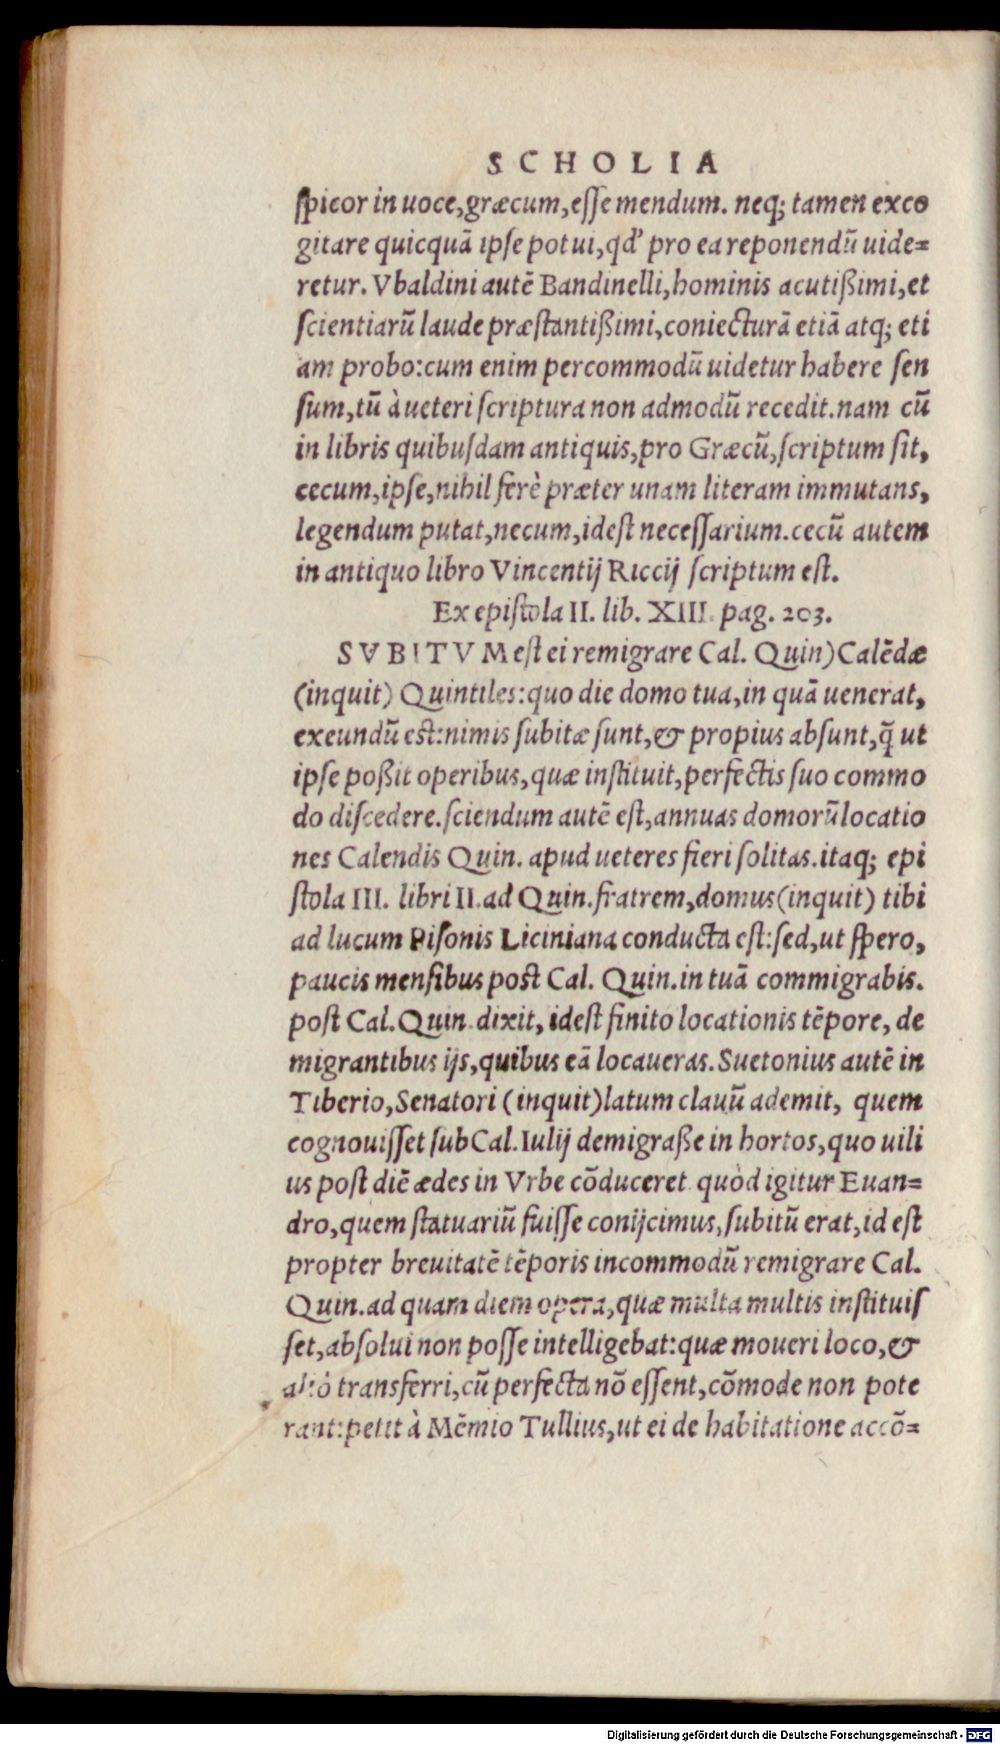 SCHOLIA
ſpicor in uoce,græcum,eſſe mendum. neq; tamen exco
gitare quicquā ipſe potui,qd' pro ea reponendū uide=
retur. Vbaldini autē Bandinelli,hominis acutißimi,et
ſcientiarū laude præſtantißimi,coniecturā etiā atq; eti
am probo:cum enim percommodū uidetur habere ſen
ſum,tū à ueteri ſcriptura non admodū recedit.nam cū
in libris quibuſdam antiquis,pro Græcū,ſcriptum ſit,
cecum,ipſe,nihil ferè præter unam literam immutans,
legendum putat,necum,ideſt neceſſarium.cecū autem
in antiquo libro Vincentij Riccij ſcriptum eſt.
Ex epiſtola II. lib. XIII. pag. 203.
SVBITVM eſt ei remigrare Cal. Quin) Calēdæ
(inquit) Quintiles:quo die domo tua,in quā uenerat,
exeundū eſt:nimis ſubitæ ſunt,& propius abſunt,q̄ ut
ipſe poßit operibus,quæ inſtituit,perfectis ſuo commo
do diſcedere.ſciendum autē eſt,annuas domorū locatio
nes Calendis Quin. apud ueteres fieri ſolitas.itaq; epi
ſtola III. libri II.ad Quin.fratrem,domus(inquit) tibi
ad lucum Piſonis Liciniana conducta eſt:ſed,ut ſpero,
paucis menſibus poſt Cal. Quin.in tuā commigrabis.
poſt Cal.Quin.dixit, ideſt finito locationis tēpore, de
migrantibus ijs,quibus eā locaueras.Suetonius autē in
Tiberio,Senatori (inquit)latum clauū ademit, quem
cognouiſſet ſub Cal.Iulij demigraße in hortos,quo uili
us poſt diē ædes in Vrbe cōduceret quòd igitur Euan=
dro,quem ſtatuariū fuiſſe conijcimus,ſubitū erat,id eſt
propter breuitatē tēporis incommodū remigrare Cal.
Quin.ad quam diem opera,quæ multa multis inſtituiſ
ſet,abſolui non poſſe intelligebat:quæ moueri loco,&
aliò transferri,cū perfecta nō eſſent,cōmode non pote
rant:petit à Mēmio Tullius,ut ei de habitatione accō=
Digitalisierung gefördert durch die Deutsche Forschungsgemeinschaft - DFG